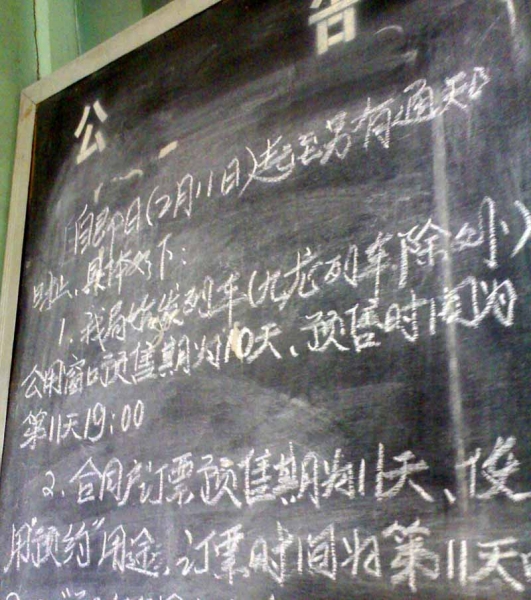 公告
自即日(2月11日)起至另有通知
时止,具体如下:
1、我局始发列车(九龙列车除外)
公用窗口预售期为10天、预售时间为
第11天19:00
2、合同户订票预售期为11天、使
用"预约"用途,订票时间为第11天